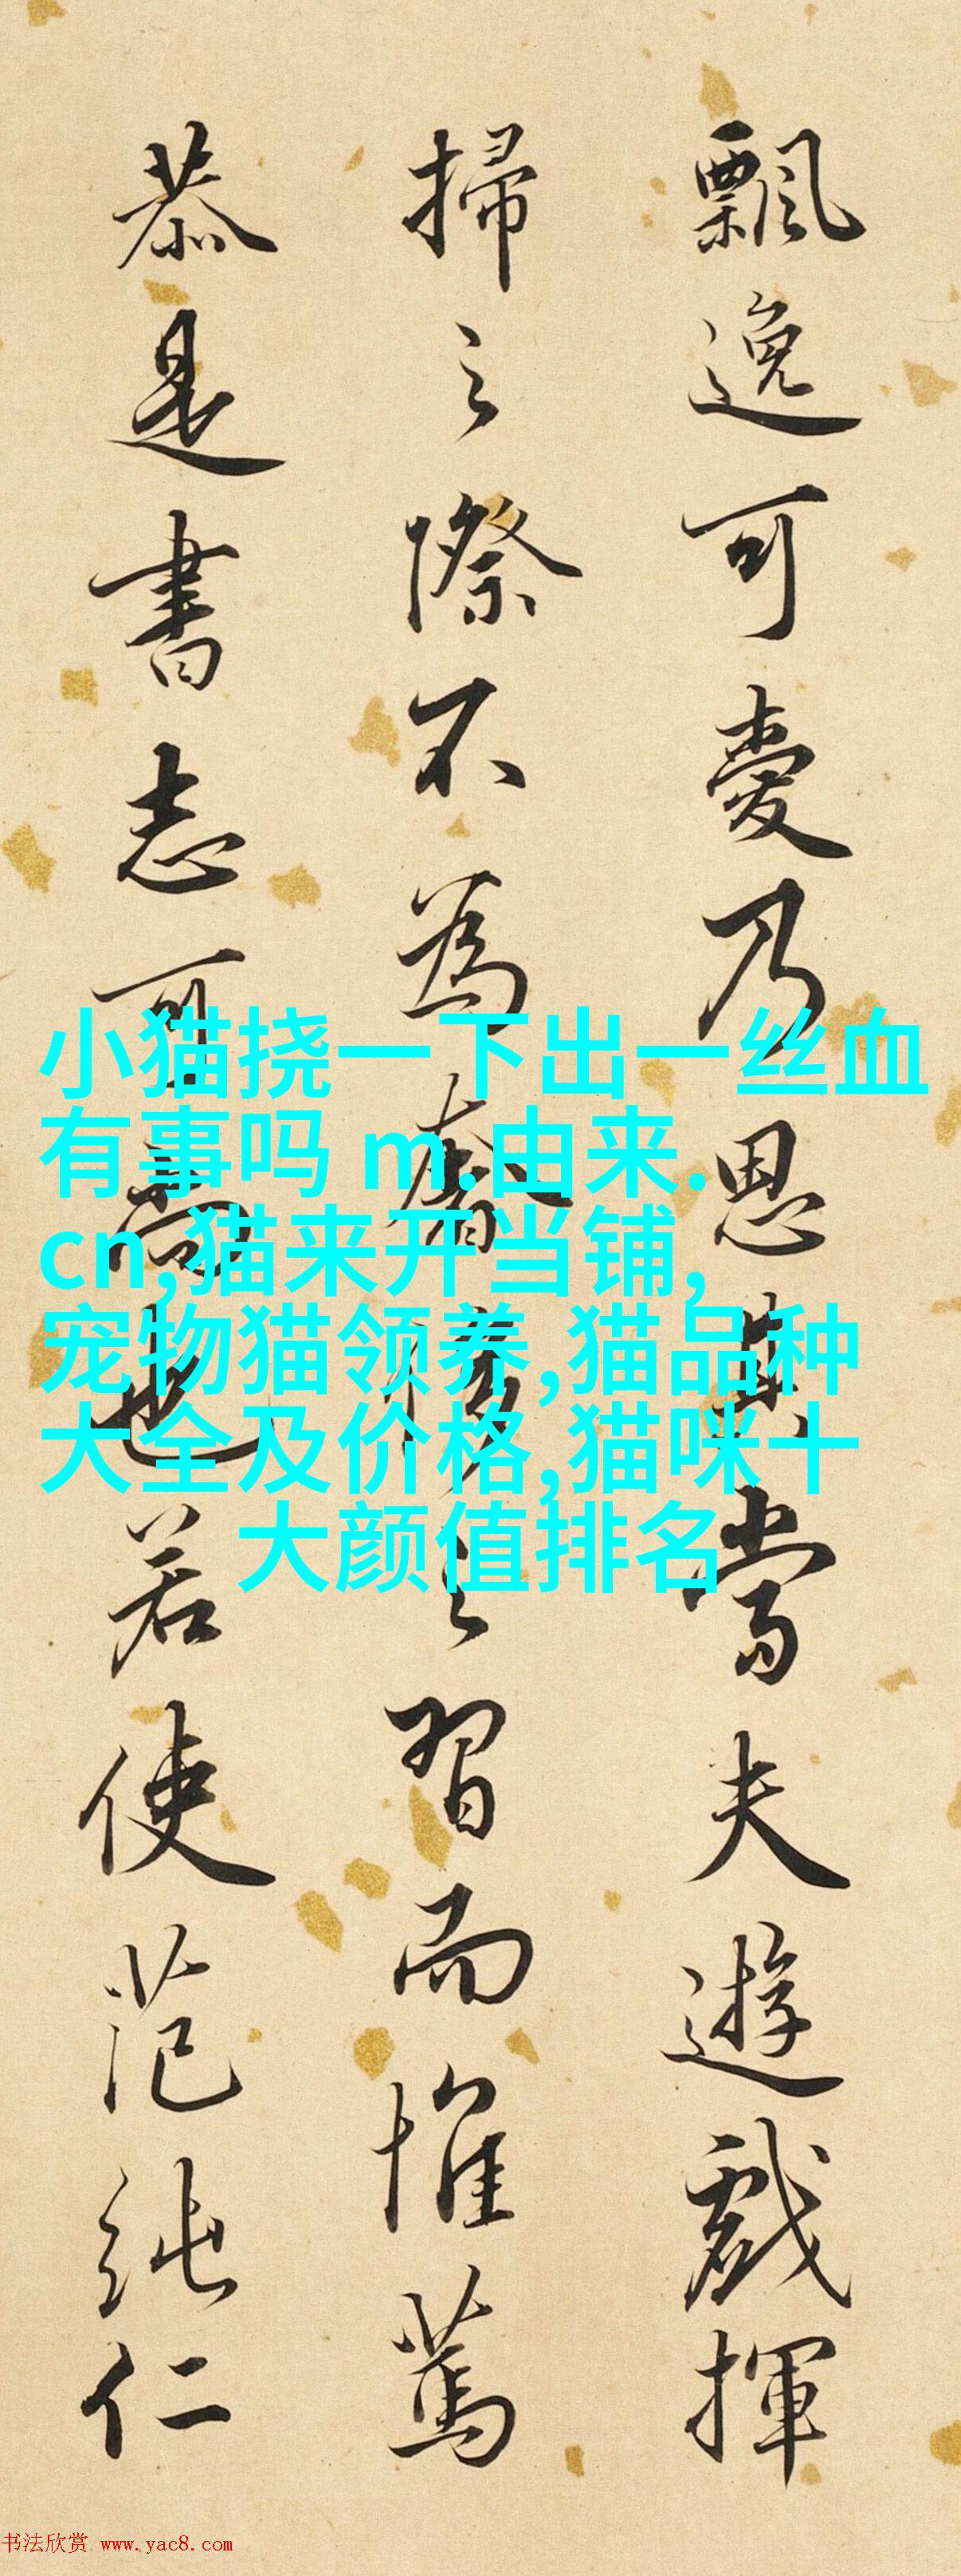 飄逸可愛乃思其嘗夫遊戲揮
掃之際不為奢侈之習而惟篤
恭是書志可尚也若使范純仁
小猫挠一下出一丝血
有事吗 m.由来.
cn,猫来开当铺,
宠物猫领养,猫品种
大全及价格,猫咪十
大颜值排名
书法欣赏 www.yac8.com